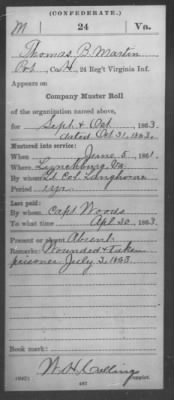 (CONFEDERATE.)
M 24 Va.
Thomas B. Martin
Pvt., Co. H, 24 Reg't Virginia Inf.
Appears on
Company Muster Roll
of the organization named above,
for Sept & Oct, 1863.
dated Oct 31, 1863.
Mustered into service:
When June 5, 1861.
Where Lynchburg Va.
By whom Lt Col. Langhorne
Period 1 yr.
Last paid:
By whom Capt Woods
To what time Apr 30, 1863.
Present or absent Absent
Remarks: Wounded & taken
prisoner July 3, 1863.
Book mark:
W. H.
Copyist.